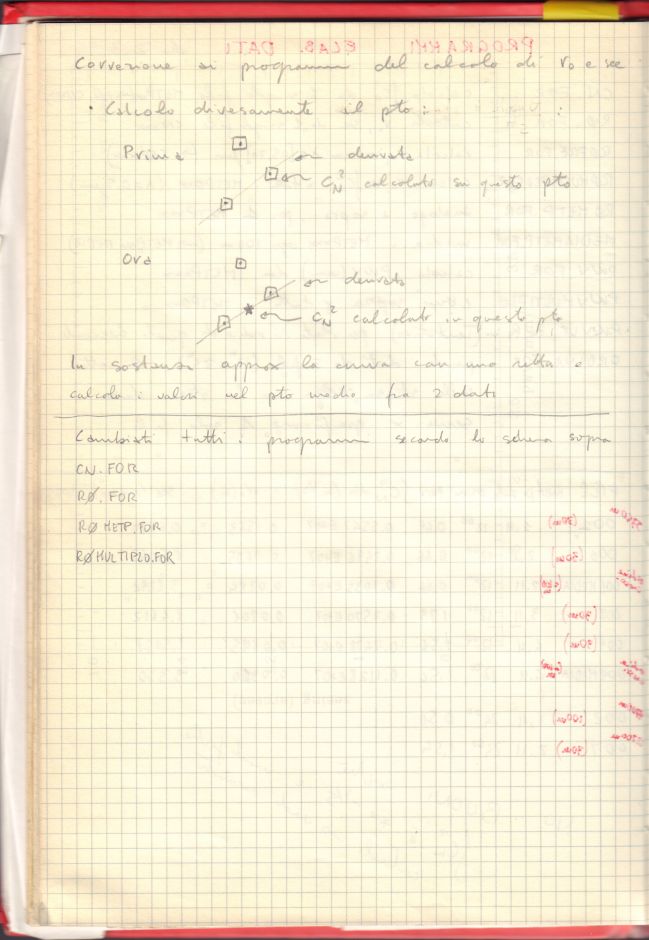 Correzione ai programmi del calcolo di r₀ e see
• Calcolo diversamente il pto :
Prima
derivata
C_N² calcolato su questo pto
Ora
derivata
C_N² calcolato in questo pto
In sostanza approx la curva con una retta e
calcolo i valori nel pto medio fra 2 dati
Cambiati tutti i programmi secondo lo schema sopra
CN.FOR
RØ.FOR
RØMETP.FOR
RØMULTIPLO.FOR